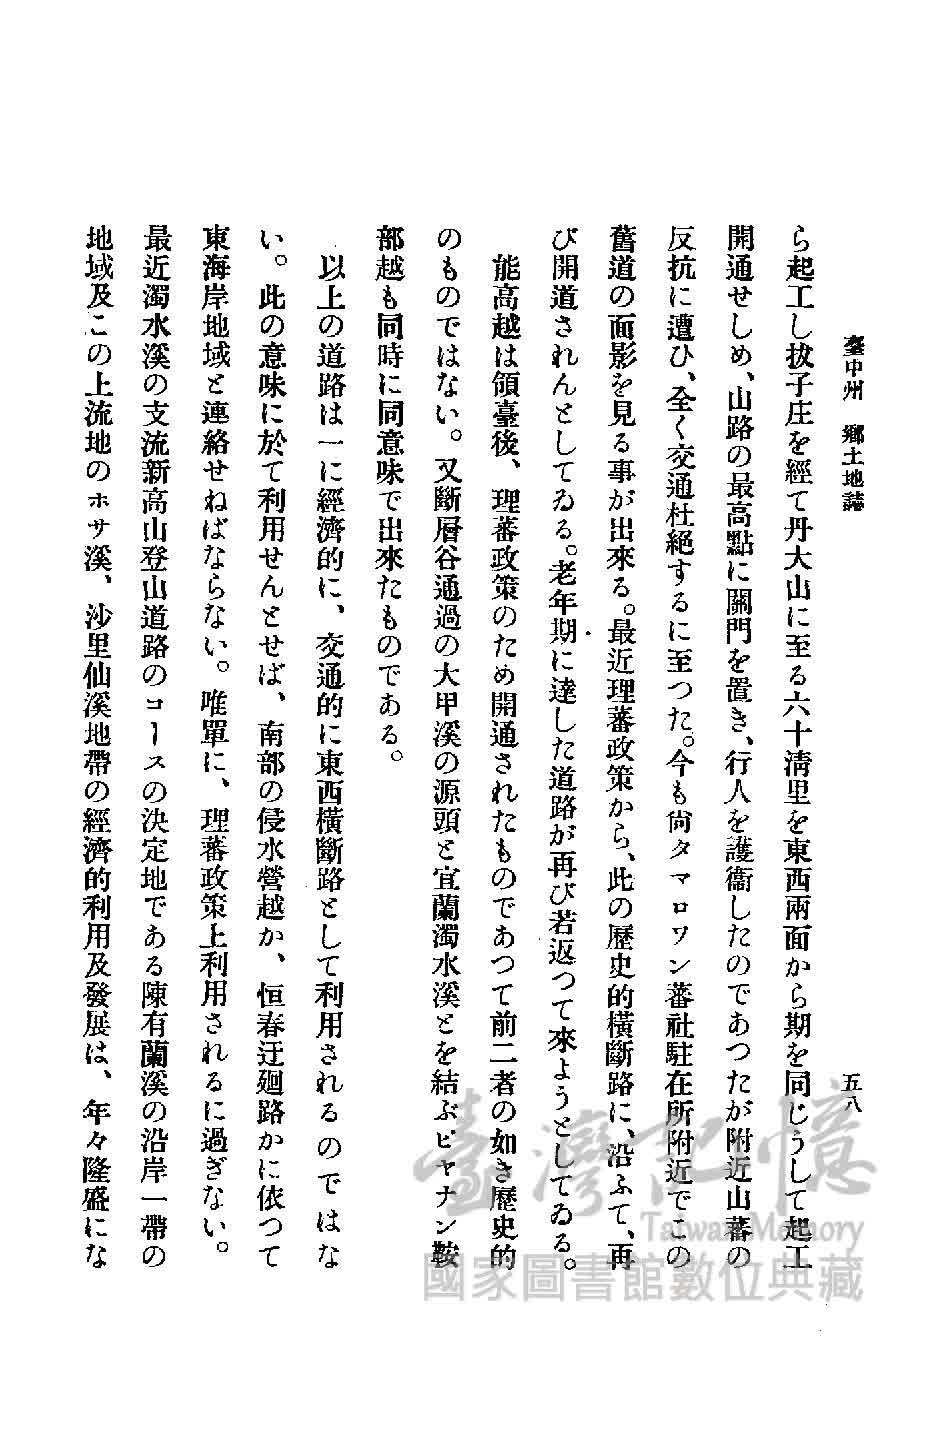 臺中州 鄉土地誌
五八
ら起工し拔子庄を經て丹大山に至る六十淸里を東西兩面から期を同じうして起工
開通せしめ、山路の最高點に關門を置き、行人を護衞したのであつたが附近山蕃の
反抗に遭ひ、全く交通杜絕するに至つた。今も尙タマロワン蕃社駐在所附近でこの
舊道の面影を見る事が出來る。最近理蕃政策から、此の歷史的橫斷路に、沿ふて、再
び開道されんとしてゐる。老年期に達した道路が再び若返つて來ようとしてゐる。
能高越は領臺後、理蕃政策のため開通されたものであつて前二者の如き歷史的
のものではない。又斷層谷通過の大甲溪の源頭と宜蘭濁水溪とを結ぶピヤナン鞍
部越も同時に同意味で出來たものである。
以上の道路は一に經濟的に、交通的に東西橫斷路として利用されるのではな
い。此の意味に於て利用せんとせば、南部の侵水營越か、恒春迂廻路かに依つて
東海岸地域と連絡せねばならない。唯單に、理蕃政策上利用されるに過ぎない。
最近濁水溪の支流新高山登山道路のコースの決定地である陳有蘭溪の沿岸一帶の
地域及この上流地のホサ溪、沙里仙溪地帶の經濟的利用及發展は、年々隆盛にな
臺灣記憶
Taiwan Memory
國家圖書館數位典藏